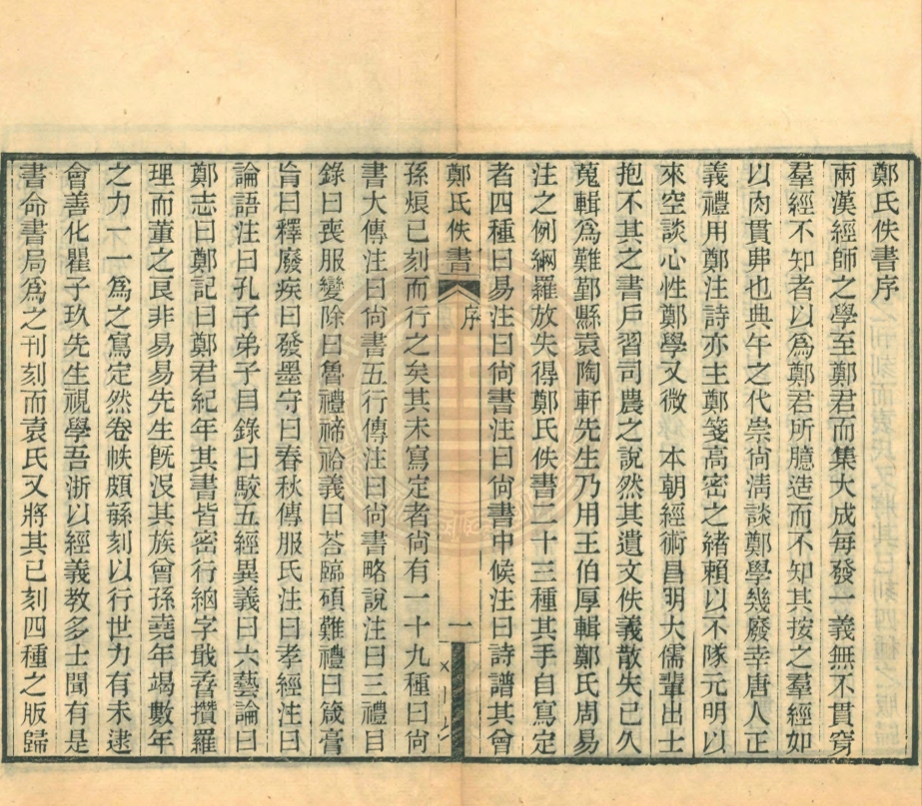 鄭氏佚書序
兩漢經師之學至鄭君而集大成每發一義無不貫穿
羣經不知者以爲鄭君所臆造而不知其按之羣經如
以肉貫弗也典午之代崇尙淸談鄭學幾廢幸唐人正
義禮用鄭注詩亦主鄭箋高密之緒賴以不隊元明以
來空談心性鄭學又微　本朝經術昌明大儒輩出士
抱不其之書戶習司農之說然其遺文佚義散失已久
蒐輯爲難鄞縣袁陶軒先生乃用王伯厚輯鄭氏周易
注之例網羅放失得鄭氏佚書二十三種其手自寫定
者四種曰易注曰尙書注曰尙書中候注曰詩譜其曾
鄭氏佚書
序
一
孫烺已刻而行之矣其未寫定者尙有一十九種曰尙
書大傳注曰尙書五行傳注曰尙書略說注曰三禮目
錄曰喪服變除曰魯禮禘祫義曰荅臨碩難禮曰箴膏
肓曰釋廢疾曰發墨守曰春秋傳服氏注曰孝經注曰
論語注曰孔子弟子目錄曰駮五經異義曰六藝論曰
鄭志曰鄭記曰鄭君紀年其書皆密行細字戢孴攢羅
理而董之良非易易先生旣沒其族曾孫堯年竭數年
之力一一爲之寫定然卷帙頗繇刻以行世力有未逮
會善化瞿子玖先生視學吾浙以經義教多士聞有是
書命書局爲之刊刻而袁氏又將其已刻四種之版歸